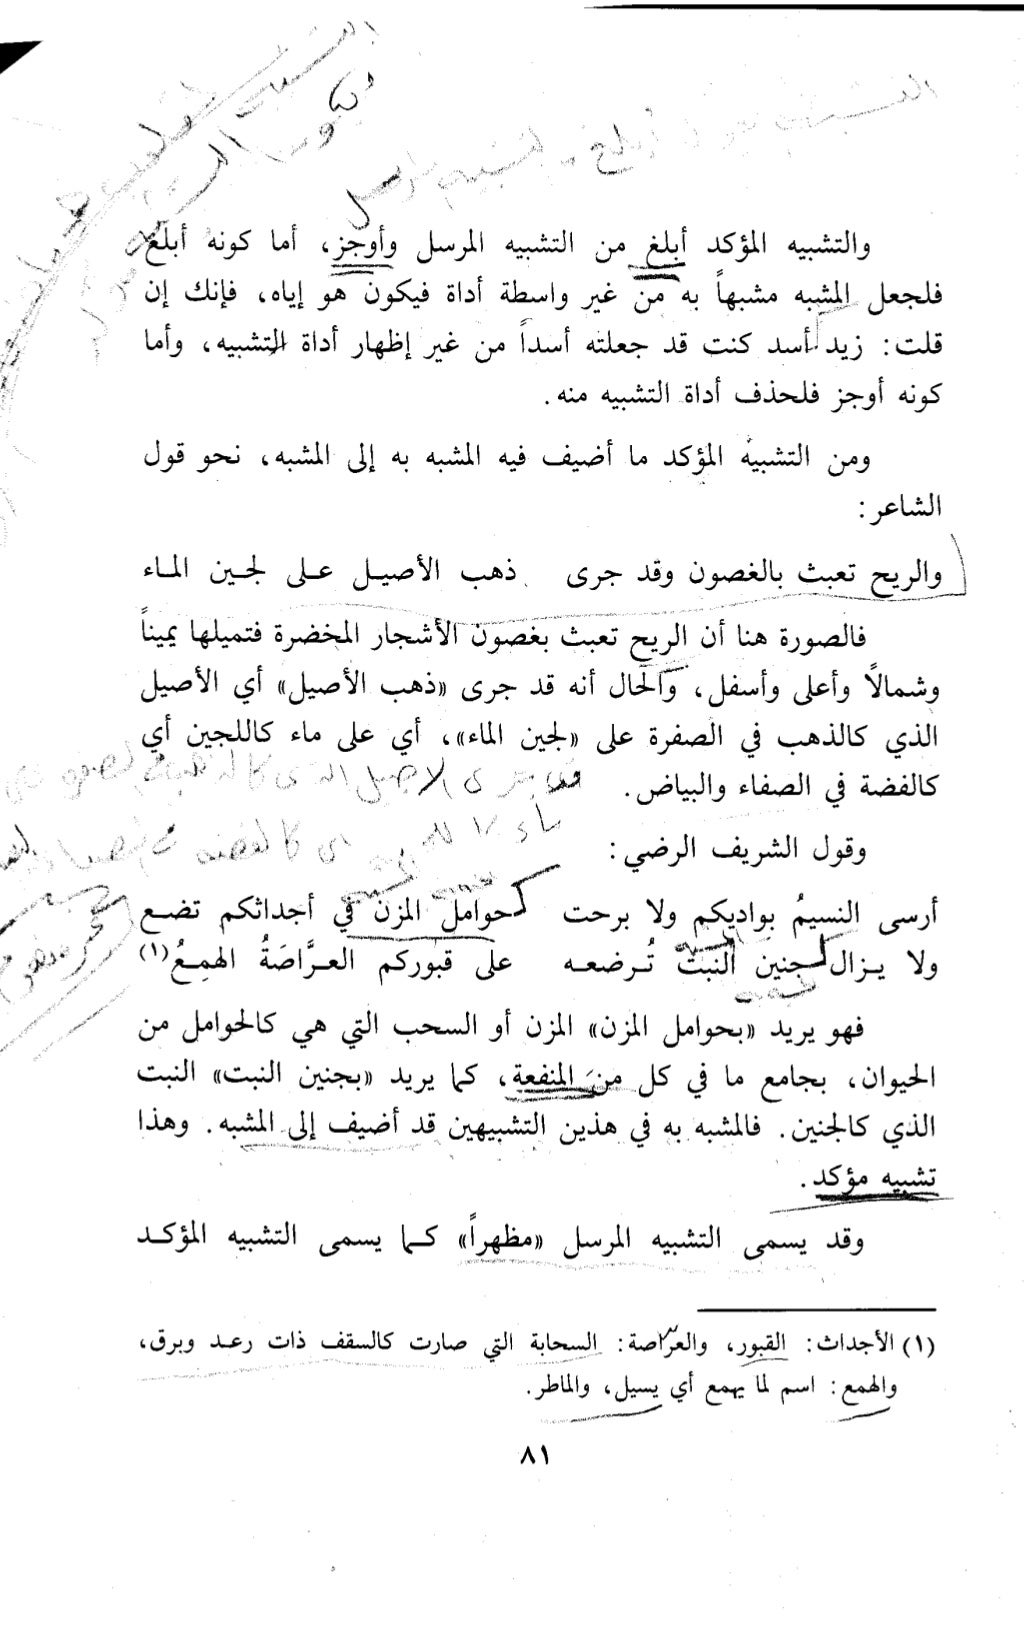 والتشبيه المؤكد أبلغ من التشبيه المرسل وأوجز، أما كونه أبلغ
فلجعل المشبه مشبهاً به من غير واسطة أداة فيكون هو إياه، فإنك إن
قلت: زيد أسد كنت قد جعلته أسداً من غير إظهار أداة التشبيه، وأما
كونه أوجز فلحذف أداة التشبيه منه.
ومن التشبيه المؤكد ما أضيف فيه المشبه به إلى المشبه، نحو قول
الشاعر:
والريح تعبث بالغصون وقد جرى ذهب الأصيل على لجين الماء
فالصورة هنا أن الريح تعبث بغصون الأشجار المخضرة فتميلها يميناً
وشمالاً وأعلى وأسفل، والحال أنه قد جرى «ذهب الأصيل» أي الأصيل
الذي كالذهب في الصفرة على «لجين الماء»، أي على ماء كاللجين أي
كالفضة في الصفاء والبياض.
وقول الشريف الرضي:
أرسى النسيمُ بواديكم ولا برحت حوامل المزن في أجداثكم تضع
ولا يزال جنين النبت تُرضعه على قبوركم العرَّاصَةُ الهمِعُ(١)
فهو يريد «بحوامل المزن» المزن أو السحب التي هي كالحوامل من
الحيوان، بجامع ما في كل من المنفعة، كما يريد «بجنين النبت» النبت
الذي كالجنين. فالمشبه به في هذين التشبيهين قد أضيف إلى المشبه. وهذا
تشبيه مؤكد.
وقد يسمى التشبيه المرسل «مظهراً» كما يسمى التشبيه المؤكد
(١) الأجداث: القبور، والعرّاصة: السحابة التي صارت كالسقف ذات رعد وبرق،
والهمع: اسم لما يهمع أي يسيل، والماطر.
٨١